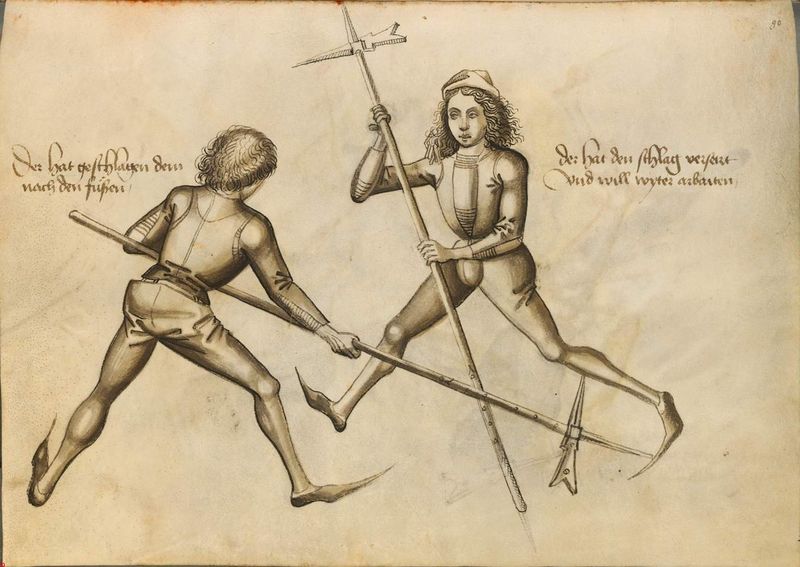 Der hat geschlagen dem
nach den füßen
der hat den schlag versetzt
Vnd will wyter arbaiten
90